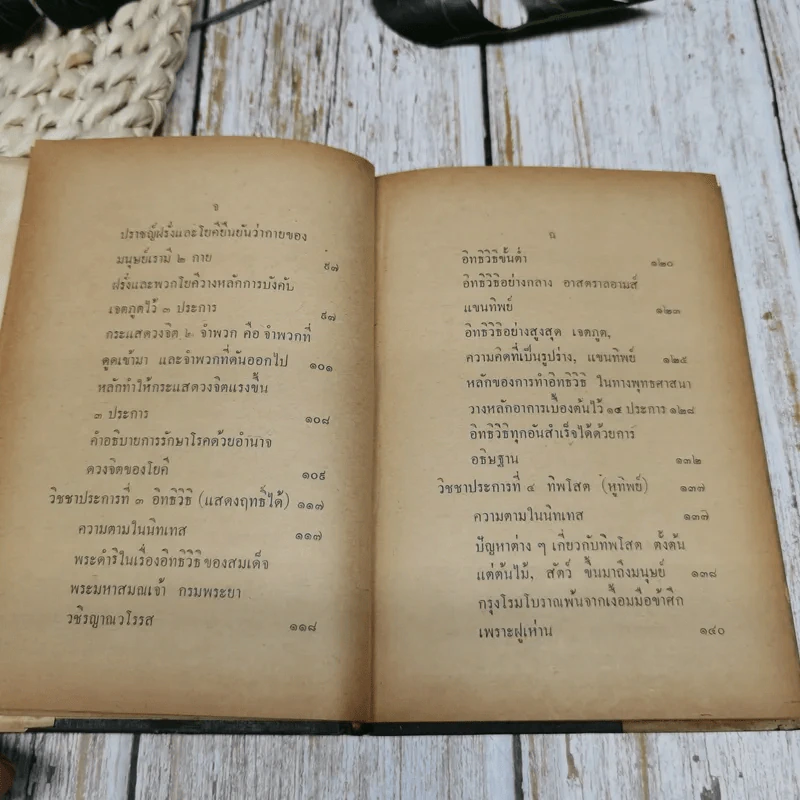 จ
ปราชญ์ฝรั่งและโยคียืนยันว่ากายของ
มนุษย์เรามี ๒ กาย ๙๗
ฝรั่งและพวกโยคีวางหลักการบังคับ
เจตภูตไว้ ๓ ประการ ๙๗
กระแสดวงจิต ๒ จำพวก คือ จำพวกที่
ดูดเข้ามา และจำพวกที่ดันออกไป ๑๐๑
หลักทำให้กระแสดวงจิตแรงขึ้น
๓ ประการ ๑๐๘
คำอธิบายการรักษาโรคด้วยอำนาจ
ดวงจิตของโยคี ๑๐๙
วิชชาประการที่ ๓ อิทธิวิธี (แสดงฤทธิ์ได้) ๑๑๗
ความตามในนิทเทส ๑๑๗
พระดำริในเรื่องอิทธิวิธี ของสมเด็จ
พระมหาสมณเจ้า กรมพระยา
วชิรญาณวโรรส ๑๑๘
ฉ
อิทธิวิธีขั้นต่ำ ๑๒๐
อิทธิวิธีอย่างกลาง อาสตราลอามส์
แขนทิพย์ ๑๒๓
อิทธิวิธีอย่างสูงสุด เจตภูต,
ความคิดที่เป็นรูปร่าง, แขนทิพย์ ๑๒๕
หลักของการทำอิทธิวิธี ในทางพุทธศาสนา
วางหลักอาการเบื้องต้นไว้ ๑๔ ประการ ๑๒๘
อิทธิวิธีทุกอันสำเร็จได้ด้วยการ
อธิษฐาน ๑๓๒
วิชชาประการที่ ๔ ทิพโสต (หูทิพย์) ๑๓๗
ความตามในนิทเทส ๑๓๗
ปัญหาต่าง ๆ เกี่ยวกับทิพโสต ตั้งต้น
แต่ต้นไม้, สัตว์ ขึ้นมาถึงมนุษย์ ๑๓๘
กรุงโรมโบราณพ้นจากเงื้อมมือข้าศึก
เพราะฝูงห่าน ๑๔๐